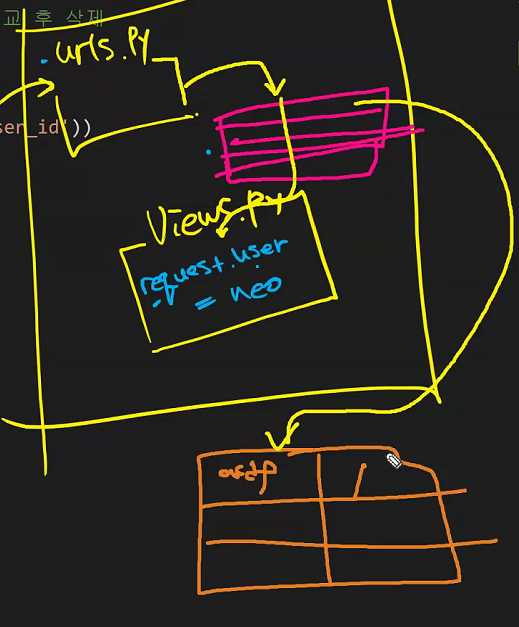 교 후 삭제
.urls.py
ser_id'))
Views.py
request.user
= neo
asdf